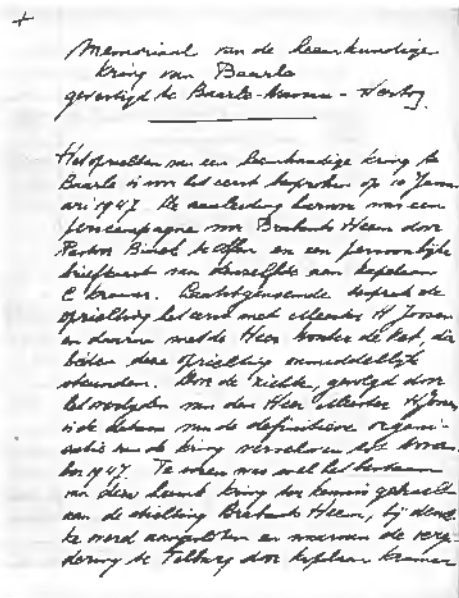 Memoriaal van de heemkundige
kring van Baarle
gevestigd te Baarle-Nassau-Hertog.
Het oprichten van een heemkundige kring te
Baarle is voor het eerst besproken op 10 Janu-
ari 1947. De aanleiding hiervan was een
perscampagne voor Brabants Heem door
Pastor Binck te Alphen en een persoonlijke
briefkaart van denzelfde aan kapelaan
C Kramer. Laatstgenoemde besprak de
oprichting het eerst met Meester H Jansen
en daarna met de Heer van der de Kat, die
beiden deze oprichting onmiddellijk
steunden. Door de ziekte, gevolgd door
het overlijden van den Heer Meester H Jansen
is de datum van de definitieve organi-
satie van de kring verschoven tot
1947. Te voren was wel het bestaan
van deze heemk. kring ter kennis gebracht
aan de stichting Brabants Heem, bij dewel-
ke werd aangesloten en waarvan de verga-
dering te Tilburg door kapelaan Kramer